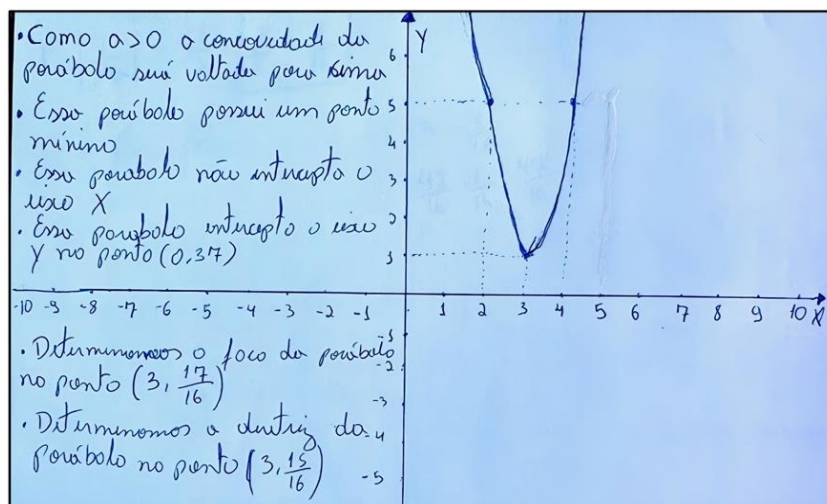 • Como a>0 a concavidade da
parábola será voltada para sima
• Essa parábola possui um ponto
mínimo
• Essa parabola não intercepta o
eixo X
• Essa parabola intercepta o eixo
Y no ponto (0,37)
• Determinamos o foco da parábola
no ponto (3, 17/16)
• Determinamos a diretriz da
parábola no ponto (3, 15/16)
Y
6
5
4
3
2
1
-10 -9 -8 -7 -6 -5 -4 -3 -2 -1 1 2 3 4 5 6 7 8 9 10 X
-1
-2
-3
-4
-5